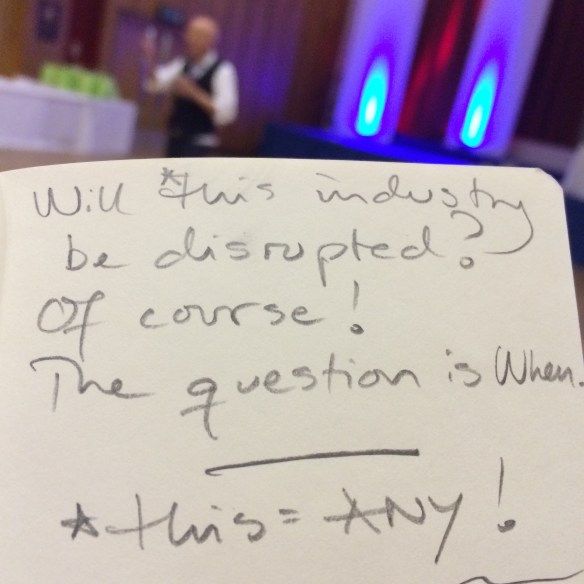 Will *this industry
be disrupted?
Of course!
The question is When.
*this = ANY!